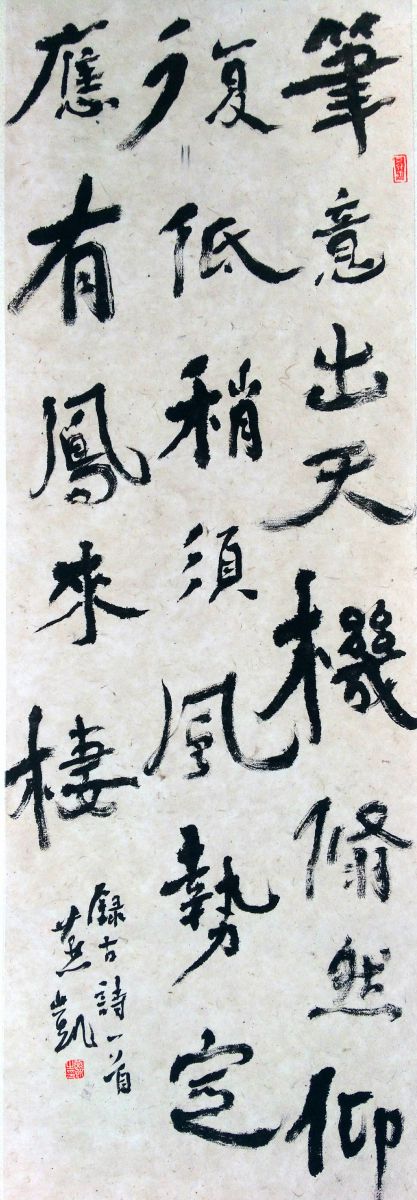 筆意出天機翛然仰
復低稍須風勢定
應有鳳來棲
錄古詩一首
燕凱